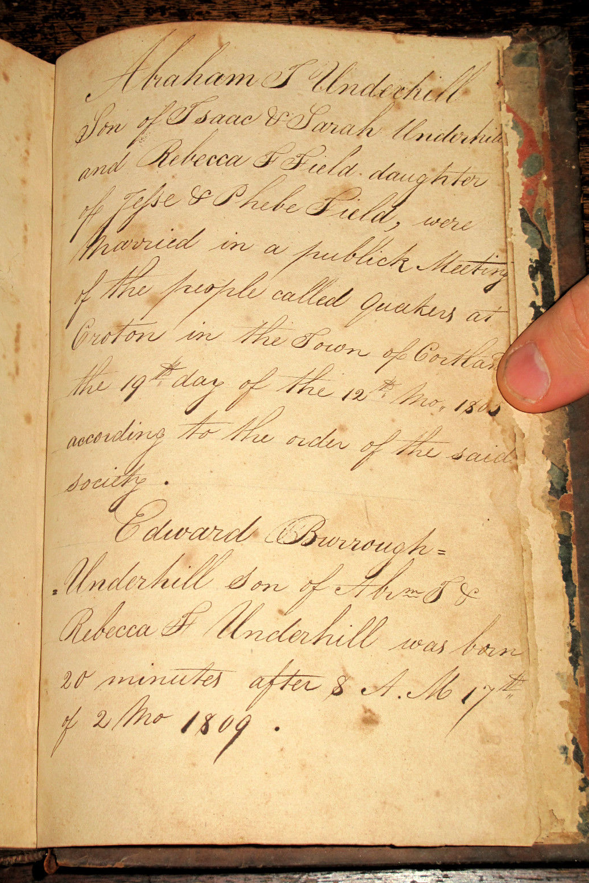 Abraham I Underhill
Son of Isaac & Sarah Underhill
and Rebecca F Field daughter
of Jesse & Phebe Field, were
married in a publick Meeting
of the people called Quakers at
Croton in the Town of Cortland
the 19th day of the 12th Mo,
according to the order of the said
society.
Edward Burrough=
=Underhill son of Abrm I &
Rebecca F Underhill was born
20 minutes after 8 A.M 17th
of 2 Mo 1809.